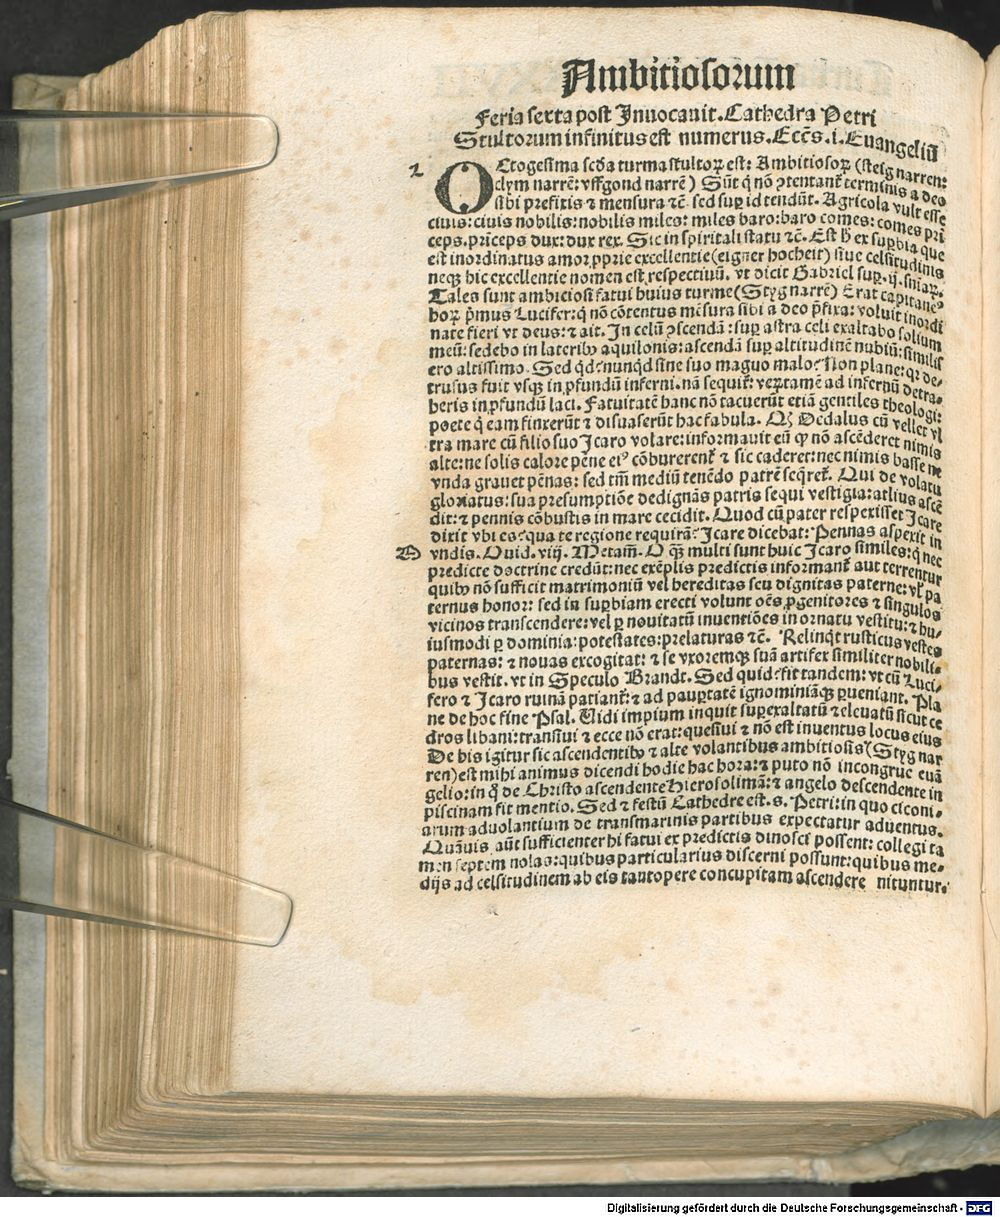 Ambitiosorum
Feria sexta post Inuocauit. Cathedra Petri
Stultorum infinitus est numerus. Ecces̄. i. Euangeliū
A
OCtogesima scd̄a turma stultoꝝ est: Ambitiosoꝝ (steig narren:
clym narrē: vffgond narrē) Sūt q̄ nō ꝯtentant̉ terminis a deo
sibi prefixis ⁊ mensura ⁊c̄. sed suꝑ id tendūt. Agricola vult esse
ciuis: ciuis nobilis: nobilis miles: miles baro: baro comes: comes pri
ceps. prīceps dux: dux rex. Sic in spiritali statu ⁊c̄. Est h̄ ex suꝑbia que
est inordinatus amor ꝓprie excellentie (eigner hocheit) siue celsitudinis
neqꝫ hic excellentie nomen est respectiuū. vt dicit Gabriel suꝑ. ij. snīaꝝ.
Tales sunt ambiciosi fatui huius turme (Styg narrē) Erat capitane⁹
hoꝝ p̄mus Lucifer: q̄ nō cōtentus mēsura sibi a deo p̄fixa: voluit inordi
nate fieri vt deus: ⁊ ait. In celū ꝯscendā: suꝑ astra celi exaltabo solium
meū: sedebo in lateribꝰ aquilonis: ascendā suꝑ altitudinē nubiū: similis
ero altissimo. Sed qd̄ e: nunqd̄ sine suo maguo malo? Non plane: qꝛ de⸗
trusus fuit vsqꝫ in ꝓfundū inferni. nā sequit̉: veꝝtamē ad infernū detra⸗
heris in ꝓfundū laci. Fatuitatē hanc nō tacuerūt etiā gentiles theologi:
poete q̄ eam finxerūt ⁊ disuaserūt hac fabula. Qꝫ Dedalus cū vellet vl
tra mare cū filio suo Icaro volare: informauit eū ꝙ nō ascēderet nimis
alte: ne solis calore pēne ei⁹ cōburerent̉ ⁊ sic caderet: nec nimis basse ne
vnda grauet pēnas: sed tm̄ mediū tenēdo patrē seq̄ret̉. Qui de volatu
gloriatus: sua presumptiōe dedignās patris sequi vestigia: atlius ascē
dit: ⁊ pennis cōbustis in mare cecidit. Quod cū pater respexisset Icare
dixit vbi es: qua te regione requirā? Icare dicebat: Pennas aspexit in
B
vndis. Ouid. viij. Metam̄. O q̄ꝫ multi sunt huic Icaro similes: q̄ nec
predicte doctrine credūt: nec exēplis predictis informant̉ aut terrentur
quibꝰ nō sufficit matrimoniū vel hereditas seu dignitas paterne: vl̓ pa
ternus honor: sed in suꝑbiam erecti volunt oēs ꝓgenitores ⁊ singulos
vicinos transcendere: vel ꝑ nouitatū inuentiōes in ornatu vestitu: ⁊ hu⸗
iusmodi ꝑ dominia: potestates: prelaturas ⁊c̄. Relinqt̄ rusticus vestes
paternas: ⁊ nouas excogitat: ⁊ se vxoremqꝫ suā artifex similiter nobili⸗
bus vestit. vt in Speculo Brandt. Sed quid: fit tandem: vt cū Luci⸗
fero ⁊ Icaro ruinā patiant̉: ⁊ ad pauꝑtatē ignominiāqꝫ ꝑueniant. Pla
ne de hoc fine Psal. Vidi impium inquit suꝑexaltatū ⁊ eleuatū sicut ce
dros libani: transiui ⁊ ecce nō erat: quesiui ⁊ nō est inuentus locus eius
De his igitur sic ascendentibꝰ ⁊ alte volantibus ambitiosis (Styg nar
ren) est mihi animus dicendi hodie hac hora: ⁊ puto nō incongrue euā
gelio: in q̄ de Christo ascendente Hierosolimā: ⁊ angelo descendente in
piscinam fit mentio. Sed ⁊ festū Cathedre est. s. Petri: in quo ciconi⸗
arum aduolantium de transmarinis partibus expectatur aduentus.
Quāuis aūt sufficienter hi fatui ex predictis dinosci possent: collegi ta
men septem nolas: quibus particularius discerni possunt: quibus me⸗
dijs ad celsitudinem ab eis tantopere concupitam ascendere nituntur.
Digitalisierung gefördert durch die Deutsche Forschungsgemeinschaft - DFG